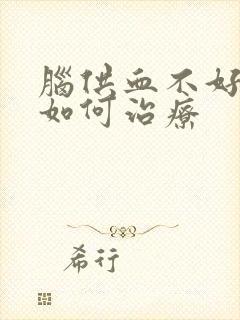 腦供血不好
如何治療
希行